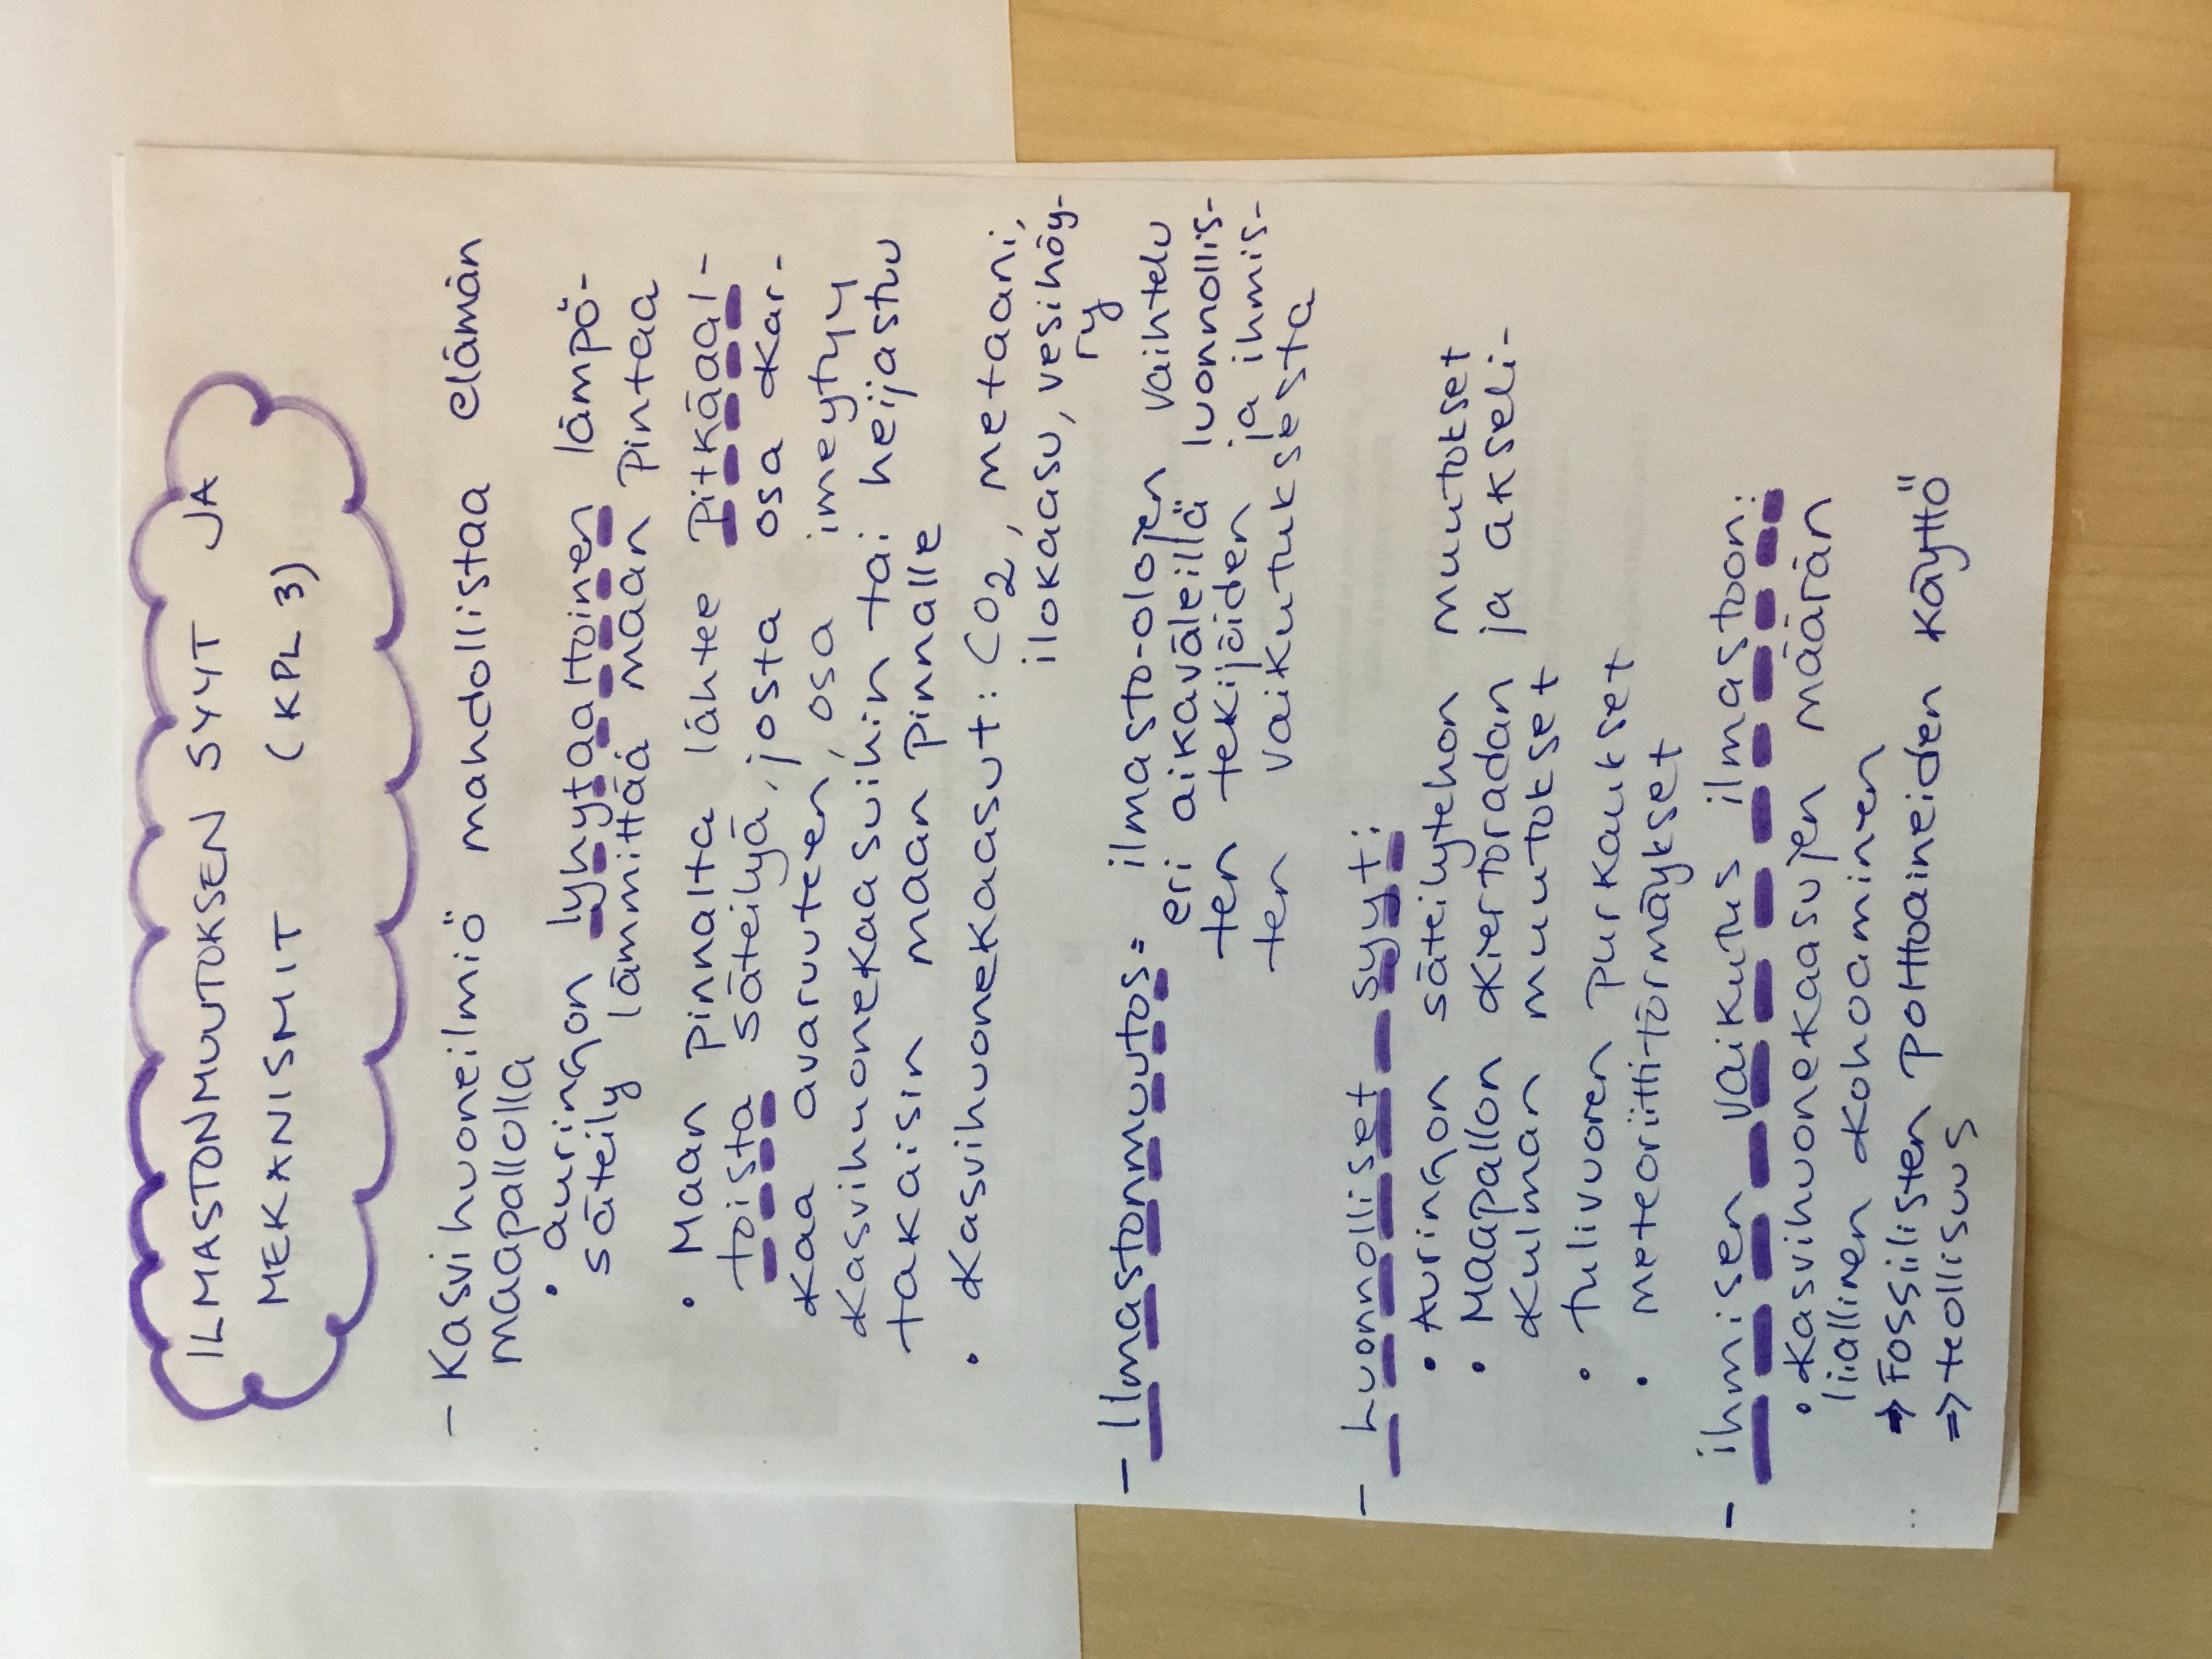 ILMASTONMUUTOKSEN SYYT JA
MEKANISMIT (KPL 3)
- Kasvihuoneilmiö mahdollistaa elämän
maapallolla
• auringon lyhytaaltoinen lämpö-
säteily lämmittää maan pintaa
• Maan pinnalta lähtee pitkäaal-
toista säteilyä, josta osa kar-
kaa avaruuteen, osa imeytyy
kasvihuonekaasuihin tai heijastuu
takaisin maan pinnalle
• kasvihuonekaasut: CO2, metaani,
ilokaasu, vesihöy-
ry
- Ilmastonmuutos= ilmasto-olojen vaihtelu
eri aikaväleillä luonnollis-
ten tekijöiden ja ihmis-
ten vaikutuksesta
- Luonnolliset syyt:
• Auringon säteilytehon muutokset
• Maapallon kiertoradan ja akseli-
kulman muutokset
• tulivuoren purkaukset
• meteoriittitörmäykset
- ihmisen vaikutus ilmastoon:
• kasvihuonekaasujen määrän
liiallinen kohoaminen
→ Fossiilisten polttoaineiden käyttö
⇒ teollisuus